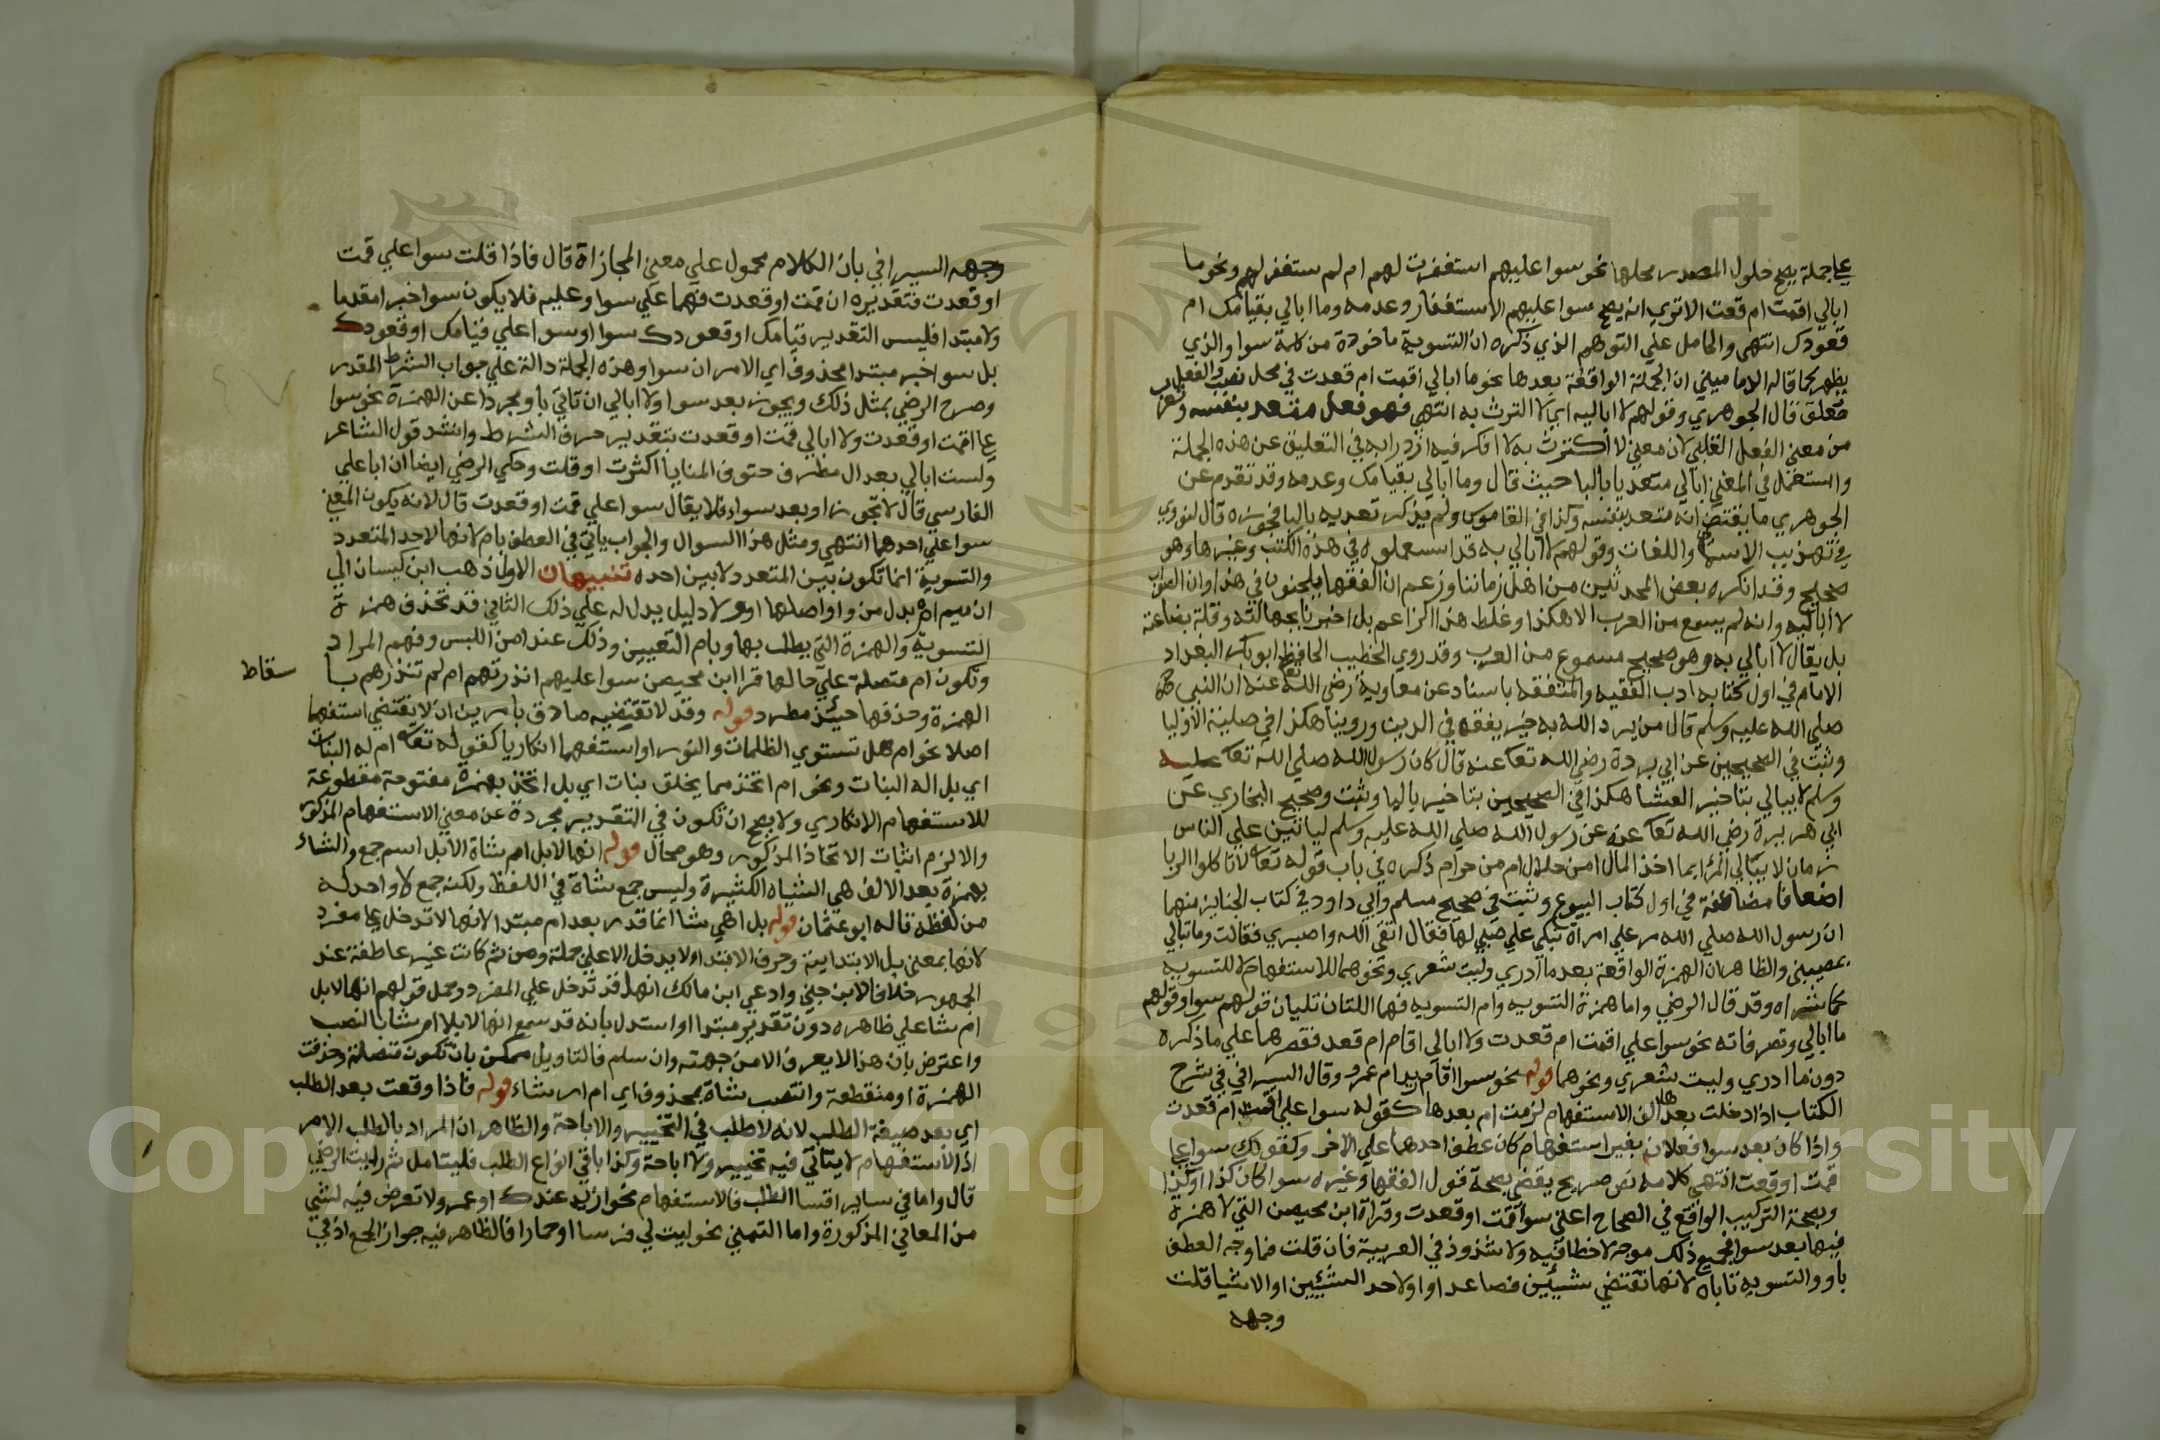 علي جملة يصح حلول المصدر محلها نحو سوا عليهم استغفرت لهم ام لم ستغفر لهم ونحو ما
ابالي اقمت ام قعدت الا تري انه يصح سوا عليهم الاستغفار وعدمه وما ابالي بقيامك ام
قعودك انتهي والحامل علي التوهم الذي ذكره ان التسوية ماخوذة من كلمة سوا والذي
يظهر كما قاله الدماميني ان الجملة الواقعة بعدها نحو ما ابالي اقمت ام قعدت في محل نصب والفعل
معلق قال الجوهري وقولهم لا اباليه اي لا اكترث به انتهي فهو فعل متعد بنفسه وتعرب
من معني الفعل القلبي لان معني لا اكترث به لا افكر فيه ازدرا به في التعليق عن هذه الجملة
واستعمل في المغني ابالي متعديا بالبا حيث قال وما ابالي بقيامك وعدمه وقد تقدم عن
الجوهري ما يقتضي انه متعد بنفسه وكذا في القاموس ولم يذكر تعديه بالبا نحو قال النووي
في تهذيب الاسما واللغات وقولهم لا ابالي به قد استعملوه في هذه الكتب وغيرها وهو
صحيح وقد انكره بعض المحدثين من اهل زماننا وزعم ان الفقها يلحنون في هذا وان الصواب
لا اباليه وانه لم يسمع من العرب الا هكذا وغلط هذا الزاعم بل اخبرنا بجهالته وقلة بضاعته
بل يقال لا ابالي به وهو صحيح مسموع من العرب وقد روي الخطيب الحافظ ابو بكر البغداد
الامام في اول كتابه ادب الفقيه والمتفقه باسناد عن معاوية رضي الله عنه ان النبي
صلي الله عليه وسلم قال من يرد الله به خير يفقهه في الدين وروينا هكذا في حلية الاوليا
وثبت في الصحيحين عن ابي بردة رضي الله تعا عنه قال كان رسول الله صلي الله تعا عليه
وسلم لا يبالي بتاخير العشا هكذا في الصحيحين بتاخير باليا وثبت وصحيح البخاري عن
ابي هريرة رضي الله تعا عنه عن رسول الله صلي الله عليه وسلم لياتين علي الناس
زمان لا يبالي المرء بما اخذ المال امن حلال ام من حرام ذكره في باب قوله تعا لا تاكلوا الربا
اضعافا مضاعفة في اول كتاب البيوع وثبت في صحيح مسلم وابي داود في كتاب الجنايز منهما
ان رسول الله صلي الله مر علي امراة تبكي علي صبي لها فقال اتقي الله واصبري فقالت وما تبالي
بمصيبتي والظاهر ان الهمزة الواقعة بعد ما ادري وليت شعري ونحوهما للاستفهام لا للتسويه
كما ستراه وقد قال الرضي واما همزة التسويه وام التسويه فهما اللتان تليان قولهم سوا وقولهم
ما ابالي وتصرفاته نحو سوا علي اقمت ام قعدت ولا ابالي اقام ام قعد فقصرهما علي ما ذكره
دون ما ادري وليت شعري ونحوهما قوله نحو سوا اقام زيد ام عمرو وقال السيرافي في شرح
الكتاب اذا دخلت بعدها الف الاستفهام لزمت ام بعدها كقوله سوا علي اقمت ام قعدت
واذا كان بعد سوا فعلان بغير استفهام كان عطف احدهما علي الاخر وكقولك سوا علي
قمت او قعدت انتهي كلامه نص صريح يقضي بصحة قول الفقها وغيره سوا كان كذا او كذا
وبصحة التركيب الواقع في الصحاح اعني سوا قمت او قعدت وقراة ابن محيصن التي لا همزة
فيها بعد سوا فجميع ذلك موجه لا خطا فيه ولا شذوذ في العربية فان قلت فما وجه العطف
باو والتسويه تاباه لانها تقتضي شيئين فصاعدا واو لاحد الشيئين او الاشيا قلت
وجهه
وجهه السيرافي بان الكلام محمول علي معني المجازاة قال فاذا قلت سوا علي قمت
او قعدت فتقديره ان قمت او قعدت فهما علي سوا وعليه فلا يكون سوا خبرا مقدما
ولا مبتدا فليس التقدير قيامك او قعودك سوا او سوا علي قيامك او قعودك
بل سوا خبر مبتدا محذوف اي الامران سوا وهذه الجملة دالة علي جواب الشرط المقدر
وصرح الرضي بمثل ذلك ويجوز بعد سوا ولا ابالي ان تاتي باو مجردا عن الهمزة نحو سوا
علي قمت او قعدت ولا ابالي قمت او قعدت بتقدير حرف الشرط وانشد قول الشاعر
ولست ابالي بعد ال مطرف حتوف المنايا اكثرت او قلت وحكي الرضي ايضا ان ابا علي
الفارسي قال لا تجوز او بعد سواء فلا يقال سوا علي قمت او قعدت قال لانه يكون المعني
سوا علي احدهما انتهي ومثل هذا السوال والجواب ياتي في العطف بام لانها لاحد المتعدد
والتسوية انما تكون بين المتعدد لا بين احده تنبيهان الاول ذهب ابن كيسان الي
ان ميم ام بدل من واو واصلها او ولا دليل يدل له علي ذلك الثاني قد تحذف همزة
التسوية والهمزة التي يطلب بها وبام التعيين وذلك عند امن اللبس وفهم المراد
وتكون ام متصلة علي حالها قرا ابن محيصن سوا عليهم انذرتهم ام لم تنذرهم با
سقاط
الهمزة وحذفها حينئذ مطرد قوله وقد لا تقتضيه صادق بامرين ان لا تقتضي استفهاما
اصلا نحو ام هل تستوي الظلمات والنور او استفهاما انكاريا كقوله تعا ام له البنات
اي بل اله البنات ونحو ام اتخذ مما يخلق بنات اي بل اتخذ بهمزة مفتوحة مقطوعة
للاستفهام الانكاري ولا يصح ان تكون في التقدير مجردة عن معني الاستفهام المذكور
والا لزم اثبات الاتخاذ المذكور وهو محال قوله انها لابل ام شاة الابل اسم جمع والشاء
بهمزة بعد الالف هي الشياه الكثيرة وليس جمع شاة في اللفظ ولكنه جمع لا واحد له
من لفظه قاله ابو عثمان قوله بل اهي شا انما قدر بعد ام مبتدا لانها لا تدخل علي مفرد
لانها بمعني بل الابتدايية وحرف الابتدا ولا يدخل الا علي جملة ومن ثم كانت غير عاطفة عند
الجمهور خلافا لابن جني وادعي ابن مالك انها قد تدخل علي المفرد وحمل قولهم انها لابل
ام شا علي ظاهره دون تقدير مبتدا واستدل بانه قد سمع انها لابلا ام شا بالنصب
واعترض بان هذا لا يعرف الا من جهته وان سلم فالتاويل ممكن بان تكون متصلة وحذفت
الهمزة او منقطعة وانتصب شاة بمحذوف اي ام اري شاء قوله فاذا وقعت بعد الطلب
اي بعد صيغة الطلب لانه لا طلب في التخيير والاباحة والظاهر ان المراد بالطلب الامر
اذ الاستفهام لا يتاتي فيه تخيير ولا اباحة وكذا باقي انواع الطلب فليتامل ثم رايت الرضي
قال واما في ساير اقسا الطلب فالاستفهام نحو ازيد عندك او عمرو لا تعرض فيه لشي
من المعاني المذكورة واما التمني نحو ليت لي فرسا او حمارا فالظاهر فيه جواز الجمع اذ في
Copyright © King Saud University